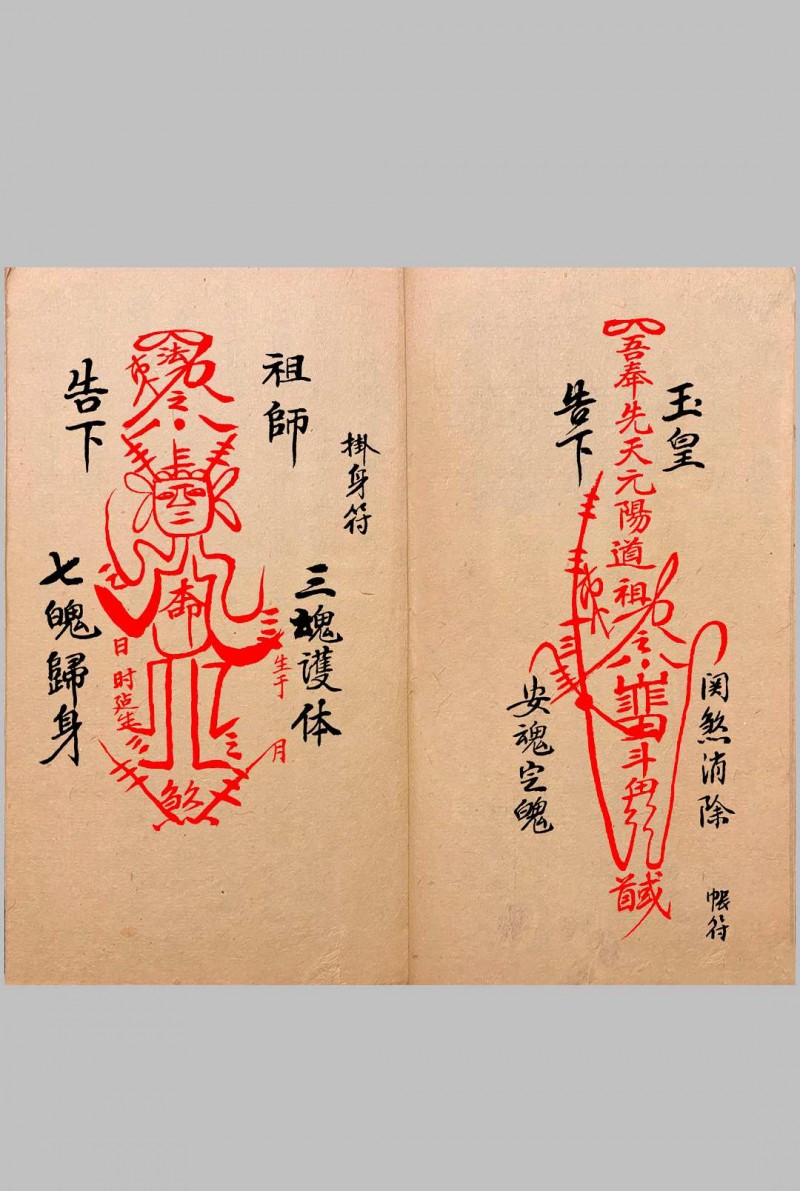 玉皇
告下
吾奉先天元陽道祖
关煞消除
安魂定魄
帐符
掛身符
祖師
告下
法
三魂護体
七魄歸身
本命
生于
月
日
时
煞